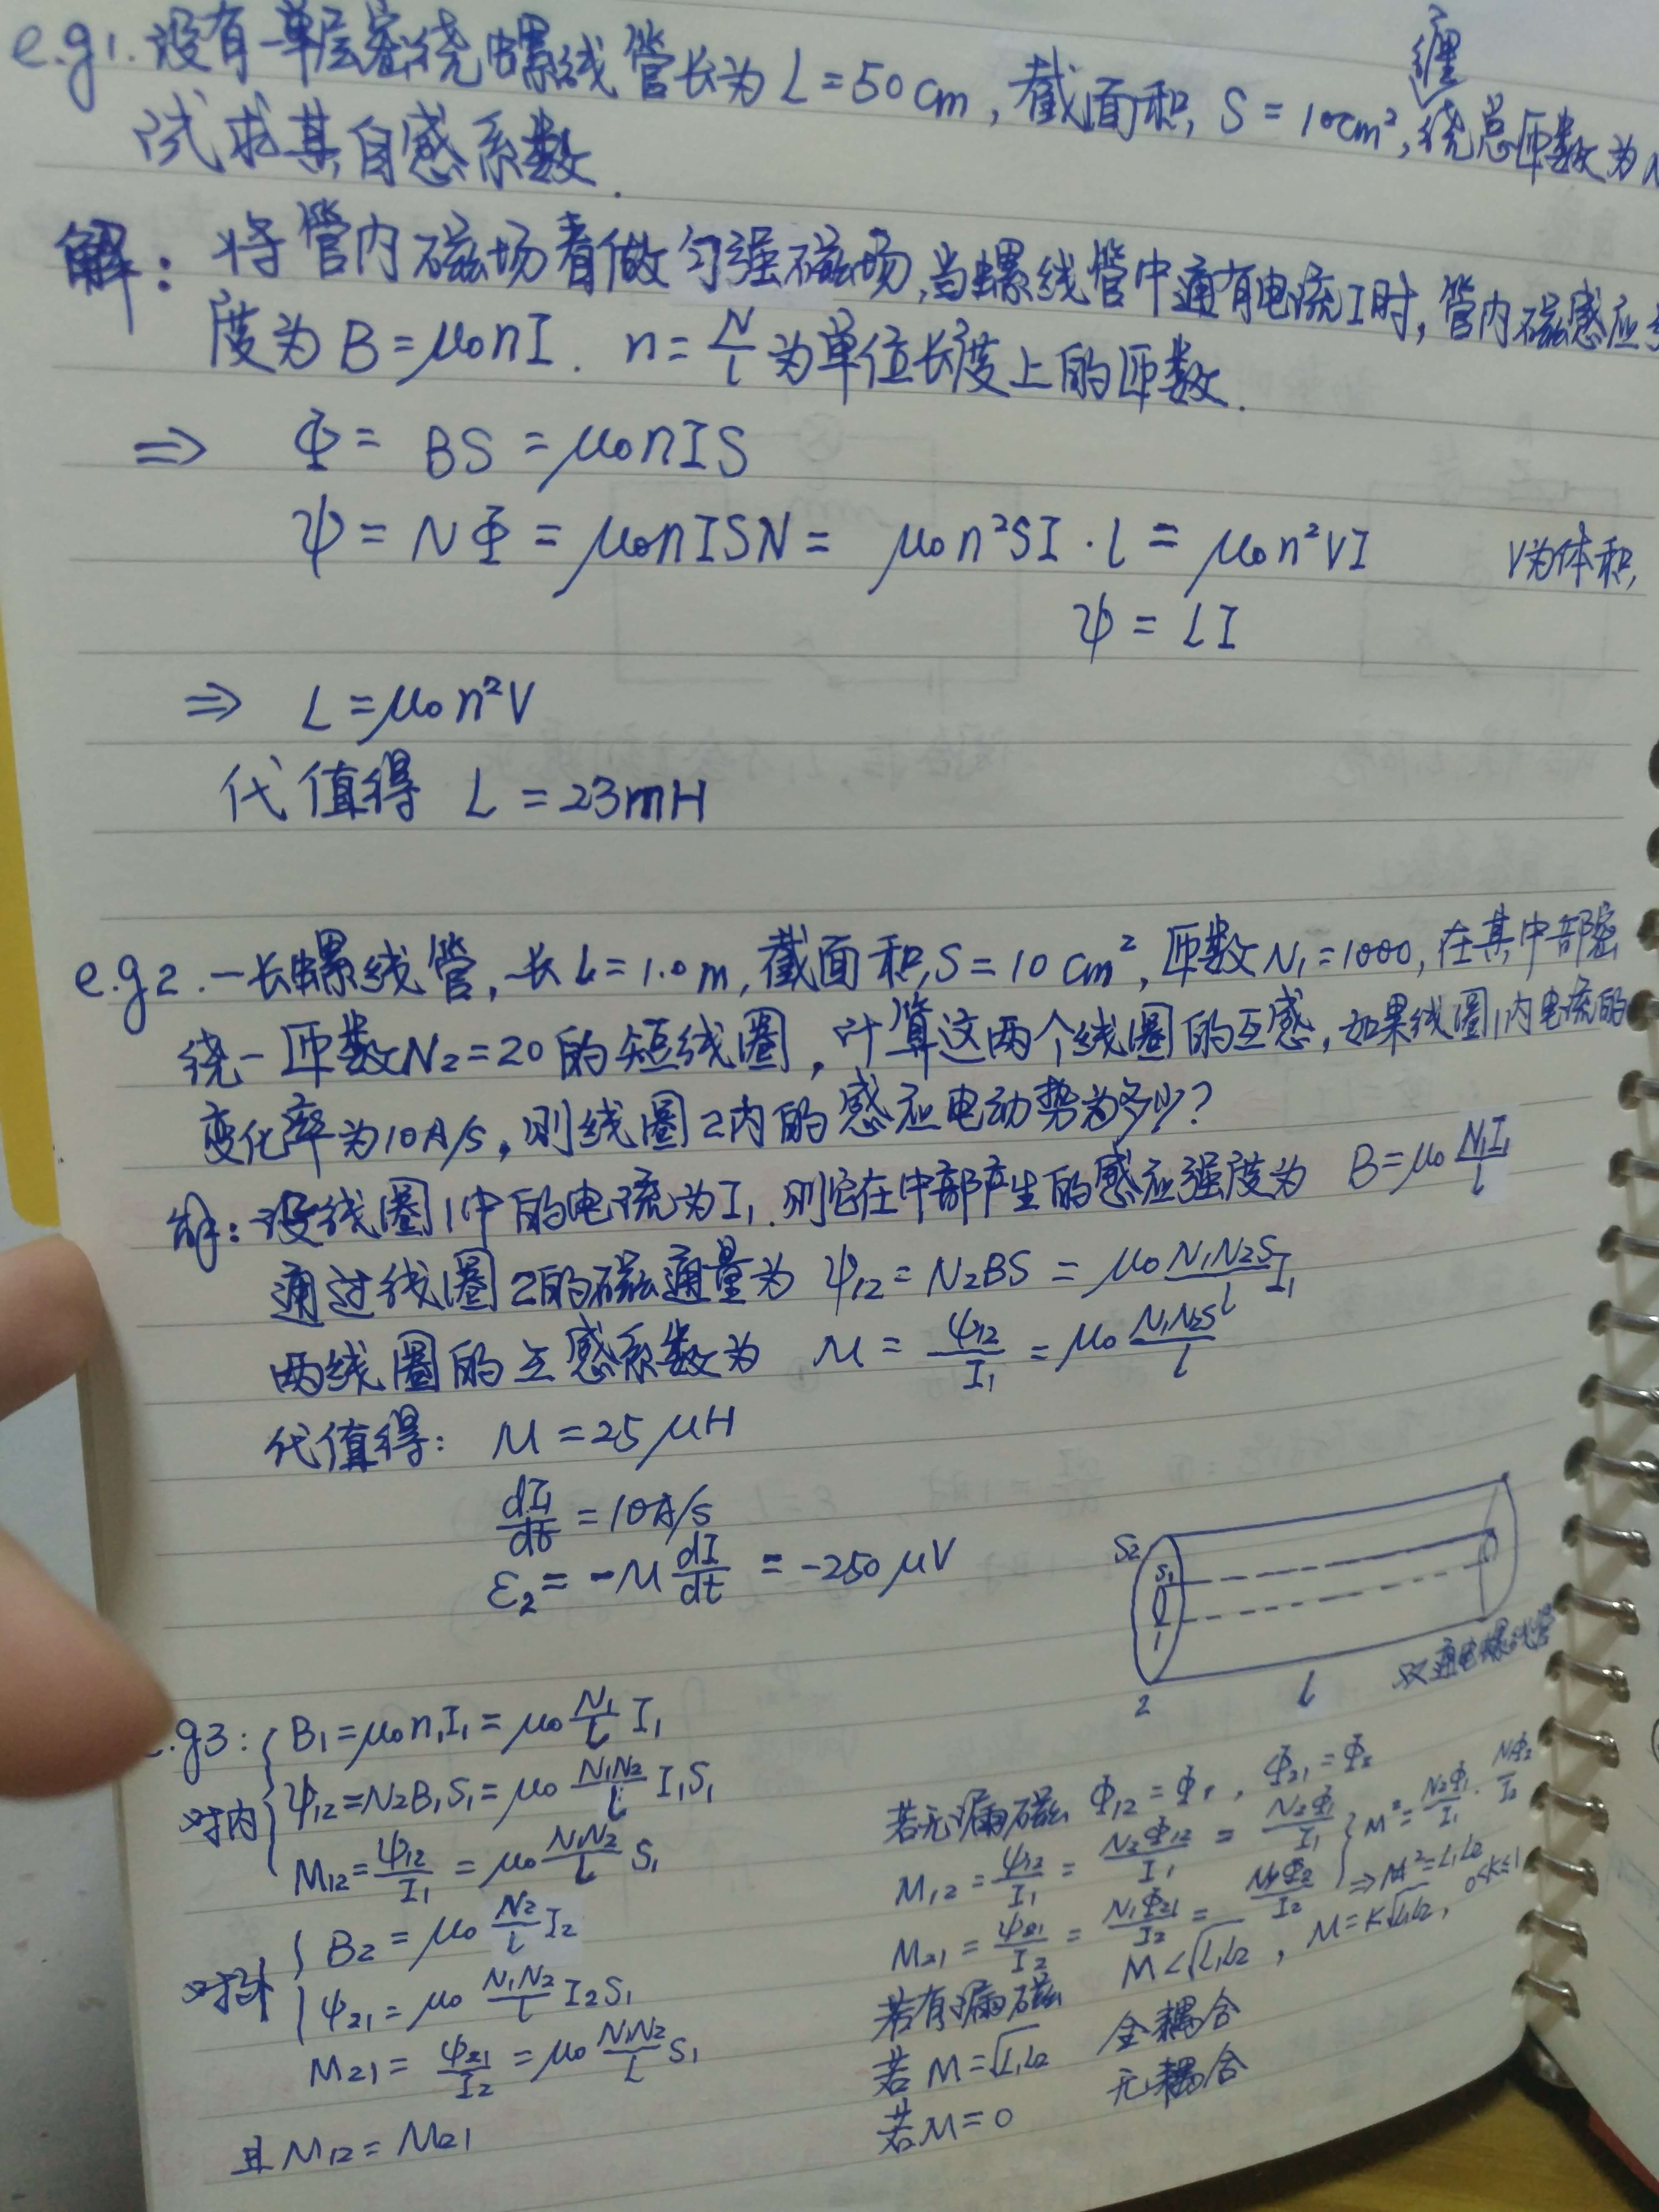 e.g1. 设有单层密绕螺线管长为L=50cm, 截面积, S=10cm², 缠绕总匝数为N
试求其自感系数.
解: 将管内磁场看做匀强磁场, 当螺线管中通有电流I时, 管内磁感应
度为B=μ₀nI. n=N/l 为单位长度上的匝数.
⇒ Φ= BS=μ₀nIS
ψ=NΦ=μ₀nISN= μ₀n²SI·l=μ₀n²VI V为体积,
ψ=LI
⇒ L=μ₀n²V
代值得 L=23mH
e.g2.一长螺线管, 长L=1.0m, 截面积,S=10cm², 匝数N₁=1000, 在其中部密
绕一匝数N₂=20的短线圈, 计算这两个线圈的互感, 如果线圈1内电流的
变化率为10A/s, 则线圈2内的感应电动势为多少?
解: 设线圈1中的电流为I₁. 则它在中部产生的感应强度为 B=μ₀N₁I₁/l
通过线圈2的磁通量为 ψ₁₂=N₂BS=μ₀N₁N₂S/l I₁
两线圈的互感系数为 M=ψ₁₂/I₁=μ₀N₁N₂S/l
代值得: M=25μH
dI₁/dt=10A/s
ε₂=-M dI/dt=-250μV
S₂
S₁
1
2
l
双通电螺线管
.g3:
对内
B₁=μ₀n₁I₁=μ₀N₁/l I₁
ψ₁₂=N₂B₁S₁=μ₀N₁N₂/l I₁S₁
M₁₂=ψ₁₂/I₁=μ₀N₁N₂/l S₁
对外
B₂=μ₀N₂/l I₂
ψ₂₁=μ₀N₁N₂/l I₂S₁
M₂₁=ψ₂₁/I₂=μ₀N₁N₂/l S₁
且M₁₂=M₂₁
若无漏磁 Φ₁₂=Φ₁, Φ₂₁=Φ₂
M₁₂=ψ₁₂/I₁=N₂Φ₁₂/I₁=N₂Φ₁/I₁
M₂₁=ψ₂₁/I₂=N₁Φ₂₁/I₂=N₁Φ₂/I₂
M²=N₂Φ₁/I₁·N₁Φ₂/I₂
⇒M²=L₁L₂
若有漏磁 M<√L₁L₂, M=K√L₁L₂, 0≤K≤1
若M=√L₁L₂ 全耦合
若M=0 无耦合